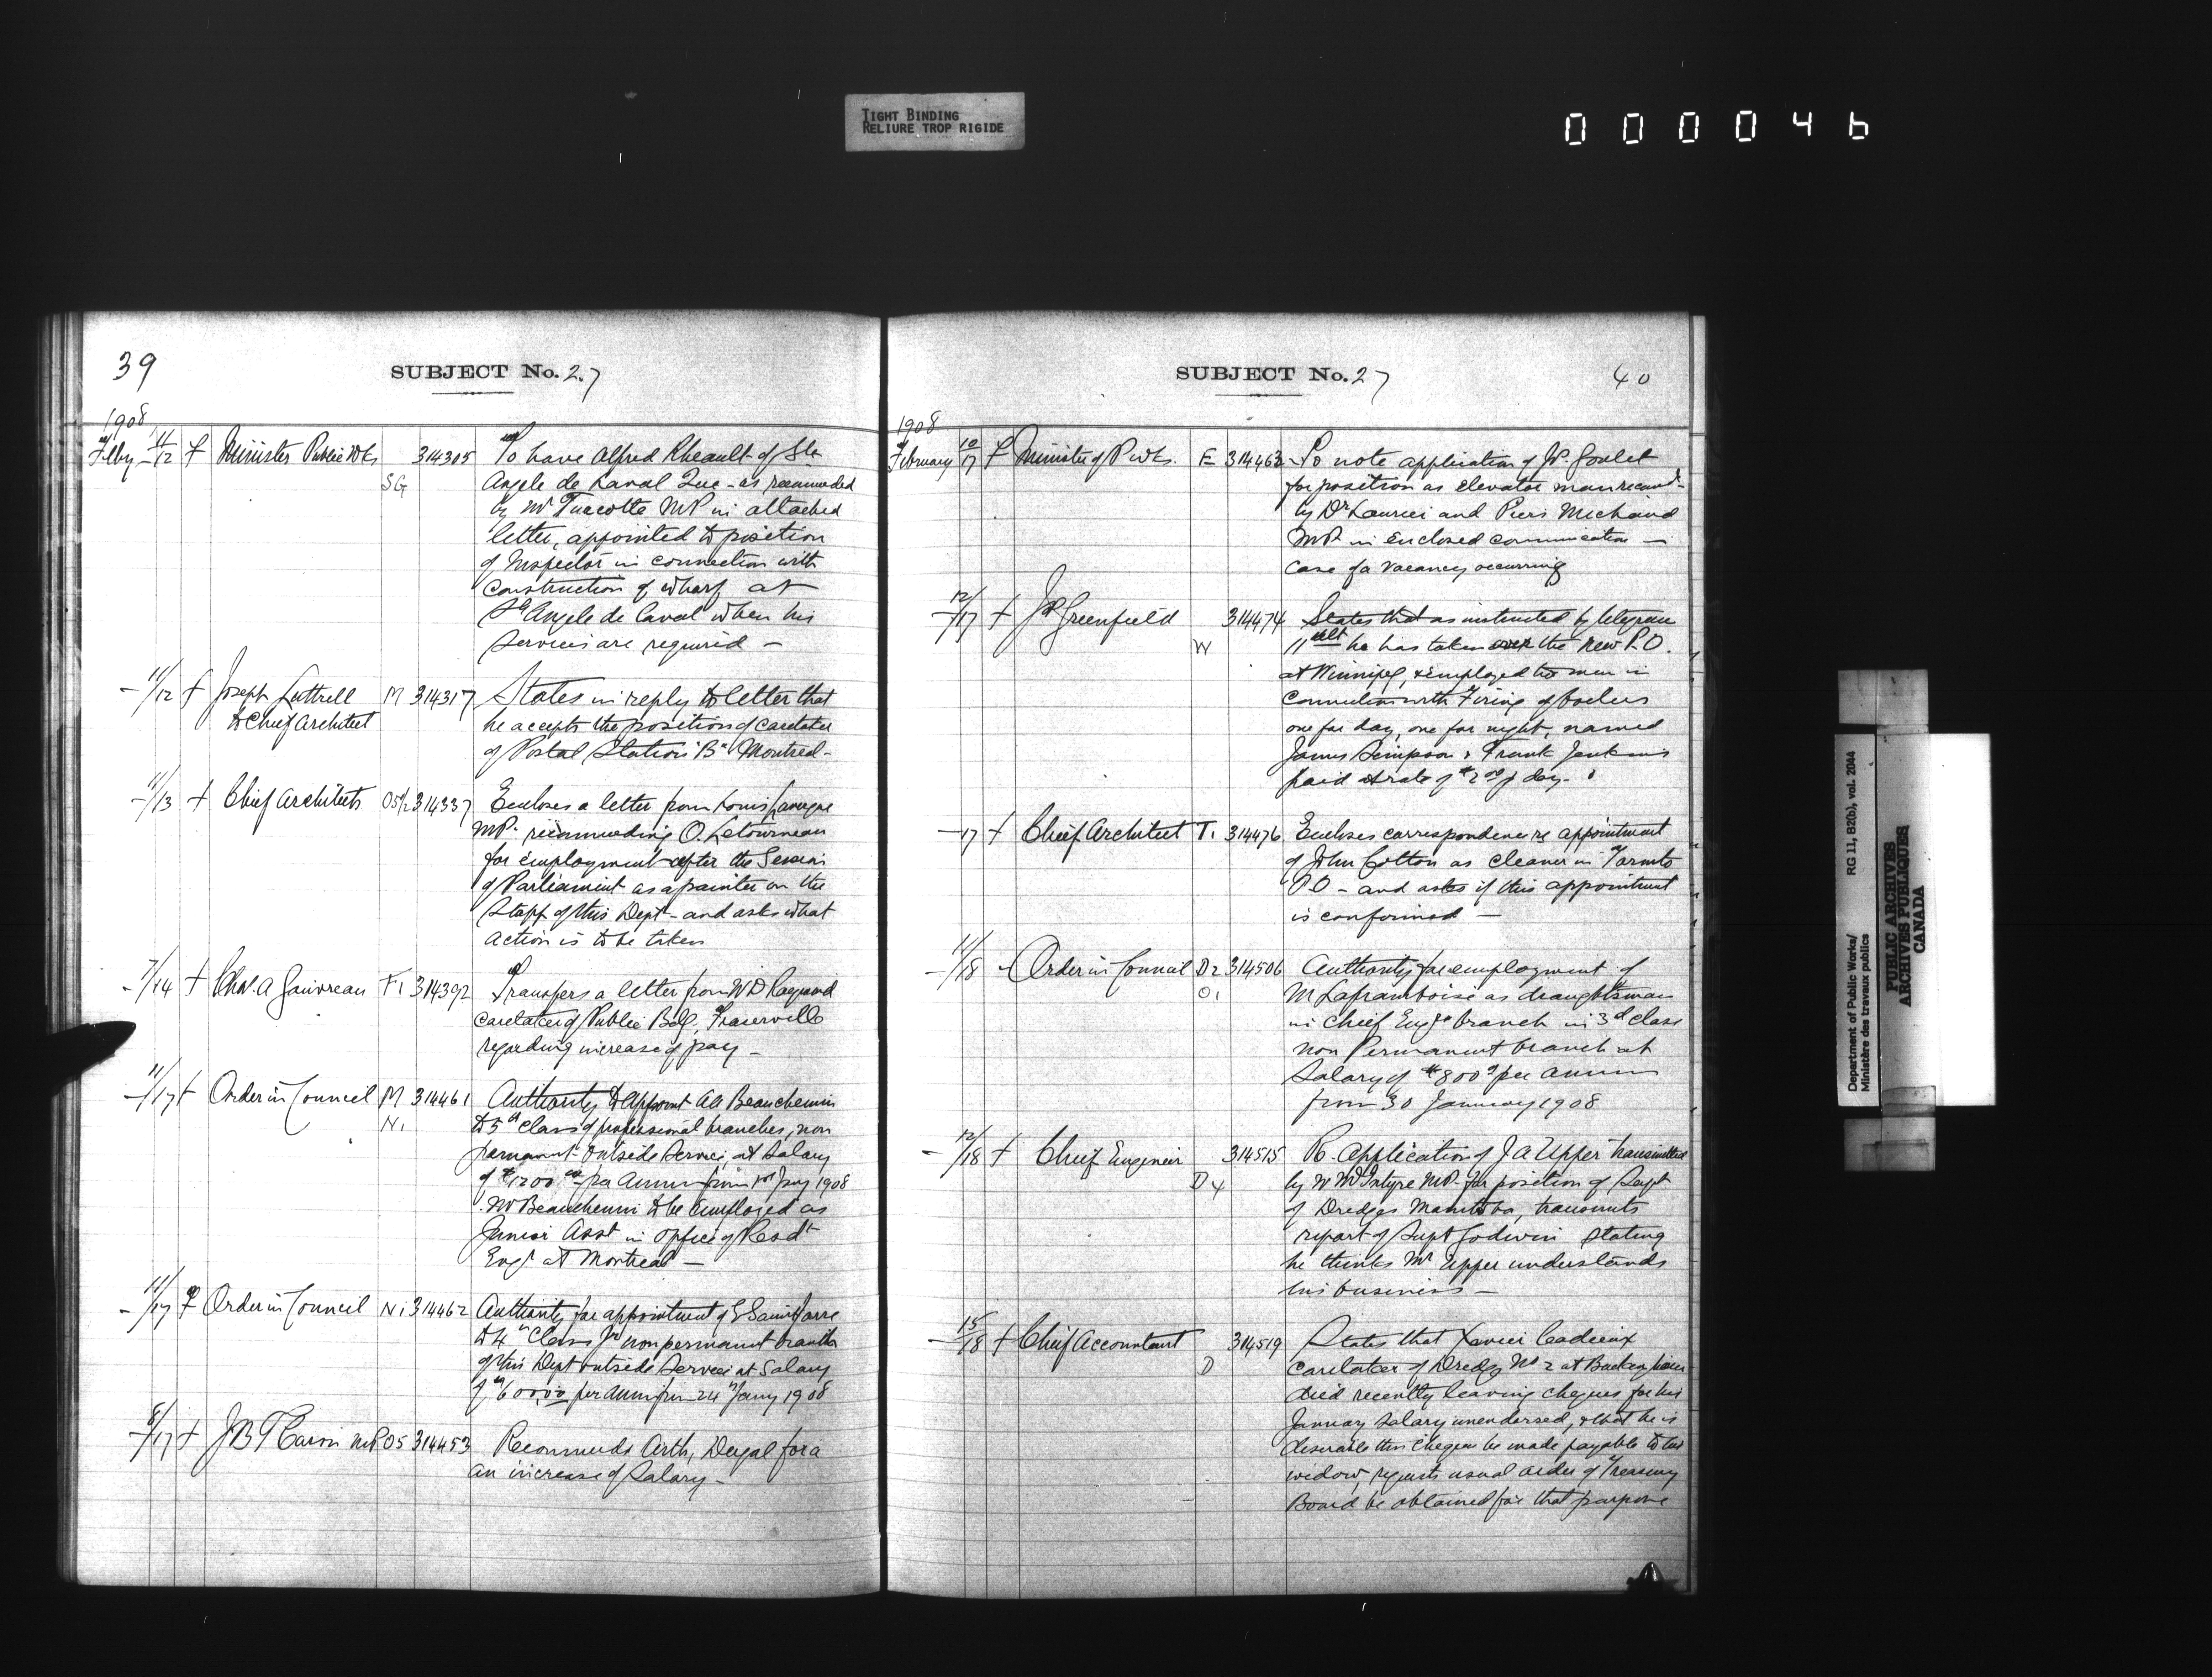 TIGHT BINDING
RELIURE TROP RIGIDE
000046
39
SUBJECT No. 27
1908
Feby 11/12 f Minister Public Wks 314305 To have Alfred Rheault of Ste
SG Angele de Laval Que - as recommended
by Mr Turcotte MP in attached
letter, appointed to position
of Inspector in connection with
construction of wharf at
Ste Angele de Laval when his
services are required -
- 11/12 f Joseph Luttrell M 314317 States in reply to letter that
to Chief Architect he accepts the position of caretaker
of Postal Station "B" Montreal -
- 11/13 f Chief Architects 05 1/2 314337 Encloses a letter from Louis Lavergne
MP. recommending O. Letourneau
for employment after the Session
of Parliament as a painter on the
Staff of this Dept - and asks what
action is to be taken
- 7/14 f Chas. A Gauvreau F1 314392 Transfers a letter from W D Raymond
caretaker of Public Bdg, Fraserville
regarding increase of pay -
- 11/17 f Order in Council M 314461 Authority to appoint AA Beauchemin
N1 to 5th class of professional branches, non
permanent outside Service, at Salary
of $1200 00 per Annum from 1st Jany 1908
Mr Beauchemin to be employed as
Junior Asst in office of Resdt
Engr at Montreal -
- 11/17 f Order in Council N1 314462 Authority for appointment of E
to 4th Class non permanent branch
of this Dept outside Service at Salary
of $600.00 per annum from 24th Jany 1908
- 8/17 f J B T Caron MP 05 314453 Recommends Arth, for a
an increase of Salary -
SUBJECT No. 27
40
1908
February 10/17 f Minister of P. Wks. E 314463 To note application of J P. Goulet
for position as elevator man recomd
by Dr Laurier and Piers Michaud
MP in enclosed communication -
case of a vacancy occurring
- 12/17 f J P Greenfield 314474 States that as instructed by telegram
W 11 ult he has taken over the new P.O.
at Winnipeg, & employed two men in
connection with Firing of boilers
one for day, one for night, named
James Simpson & Frank Jenkins
paid at rate of $2 00 p day.
- 17 f Chief Architect T1 314476 Encloses correspondence re appointment
of John Cotton as cleaner in Toronto
P.O - and asks if this appointment
is confirmed -
- 11/18 f Order in Council D2 314506 Authority for employment of
O1 M Laframboise as draughtsman
in Chief Engrs branch in 3d class
non Permanent branch at
Salary of $800 per annum
from 30 January 1908
- 12/18 f Chief Engineer 314515 Re. application of J A Upper transmitted
D4 by W McIntyre MP. for position of Supt
of Dredges Manitoba, transmits
report of Supt Godwin stating
he thinks Mr Upper understands
his business -
- 15/18 f Chief Accountant 314519 States that Xavier Cadieux
D caretaker of Dredge No 2 at Buckingham
died recently leaving cheques for his
January salary unendorsed, & that he is
desirable this cheque be made payable to his
widow, requests usual order of Treasury
Board be obtained for that purpose
Department of Public Works/ RG 11, B2(b), vol. 2044
Ministère des travaux publics
PUBLIC ARCHIVES
ARCHIVES PUBLIQUES
CANADA